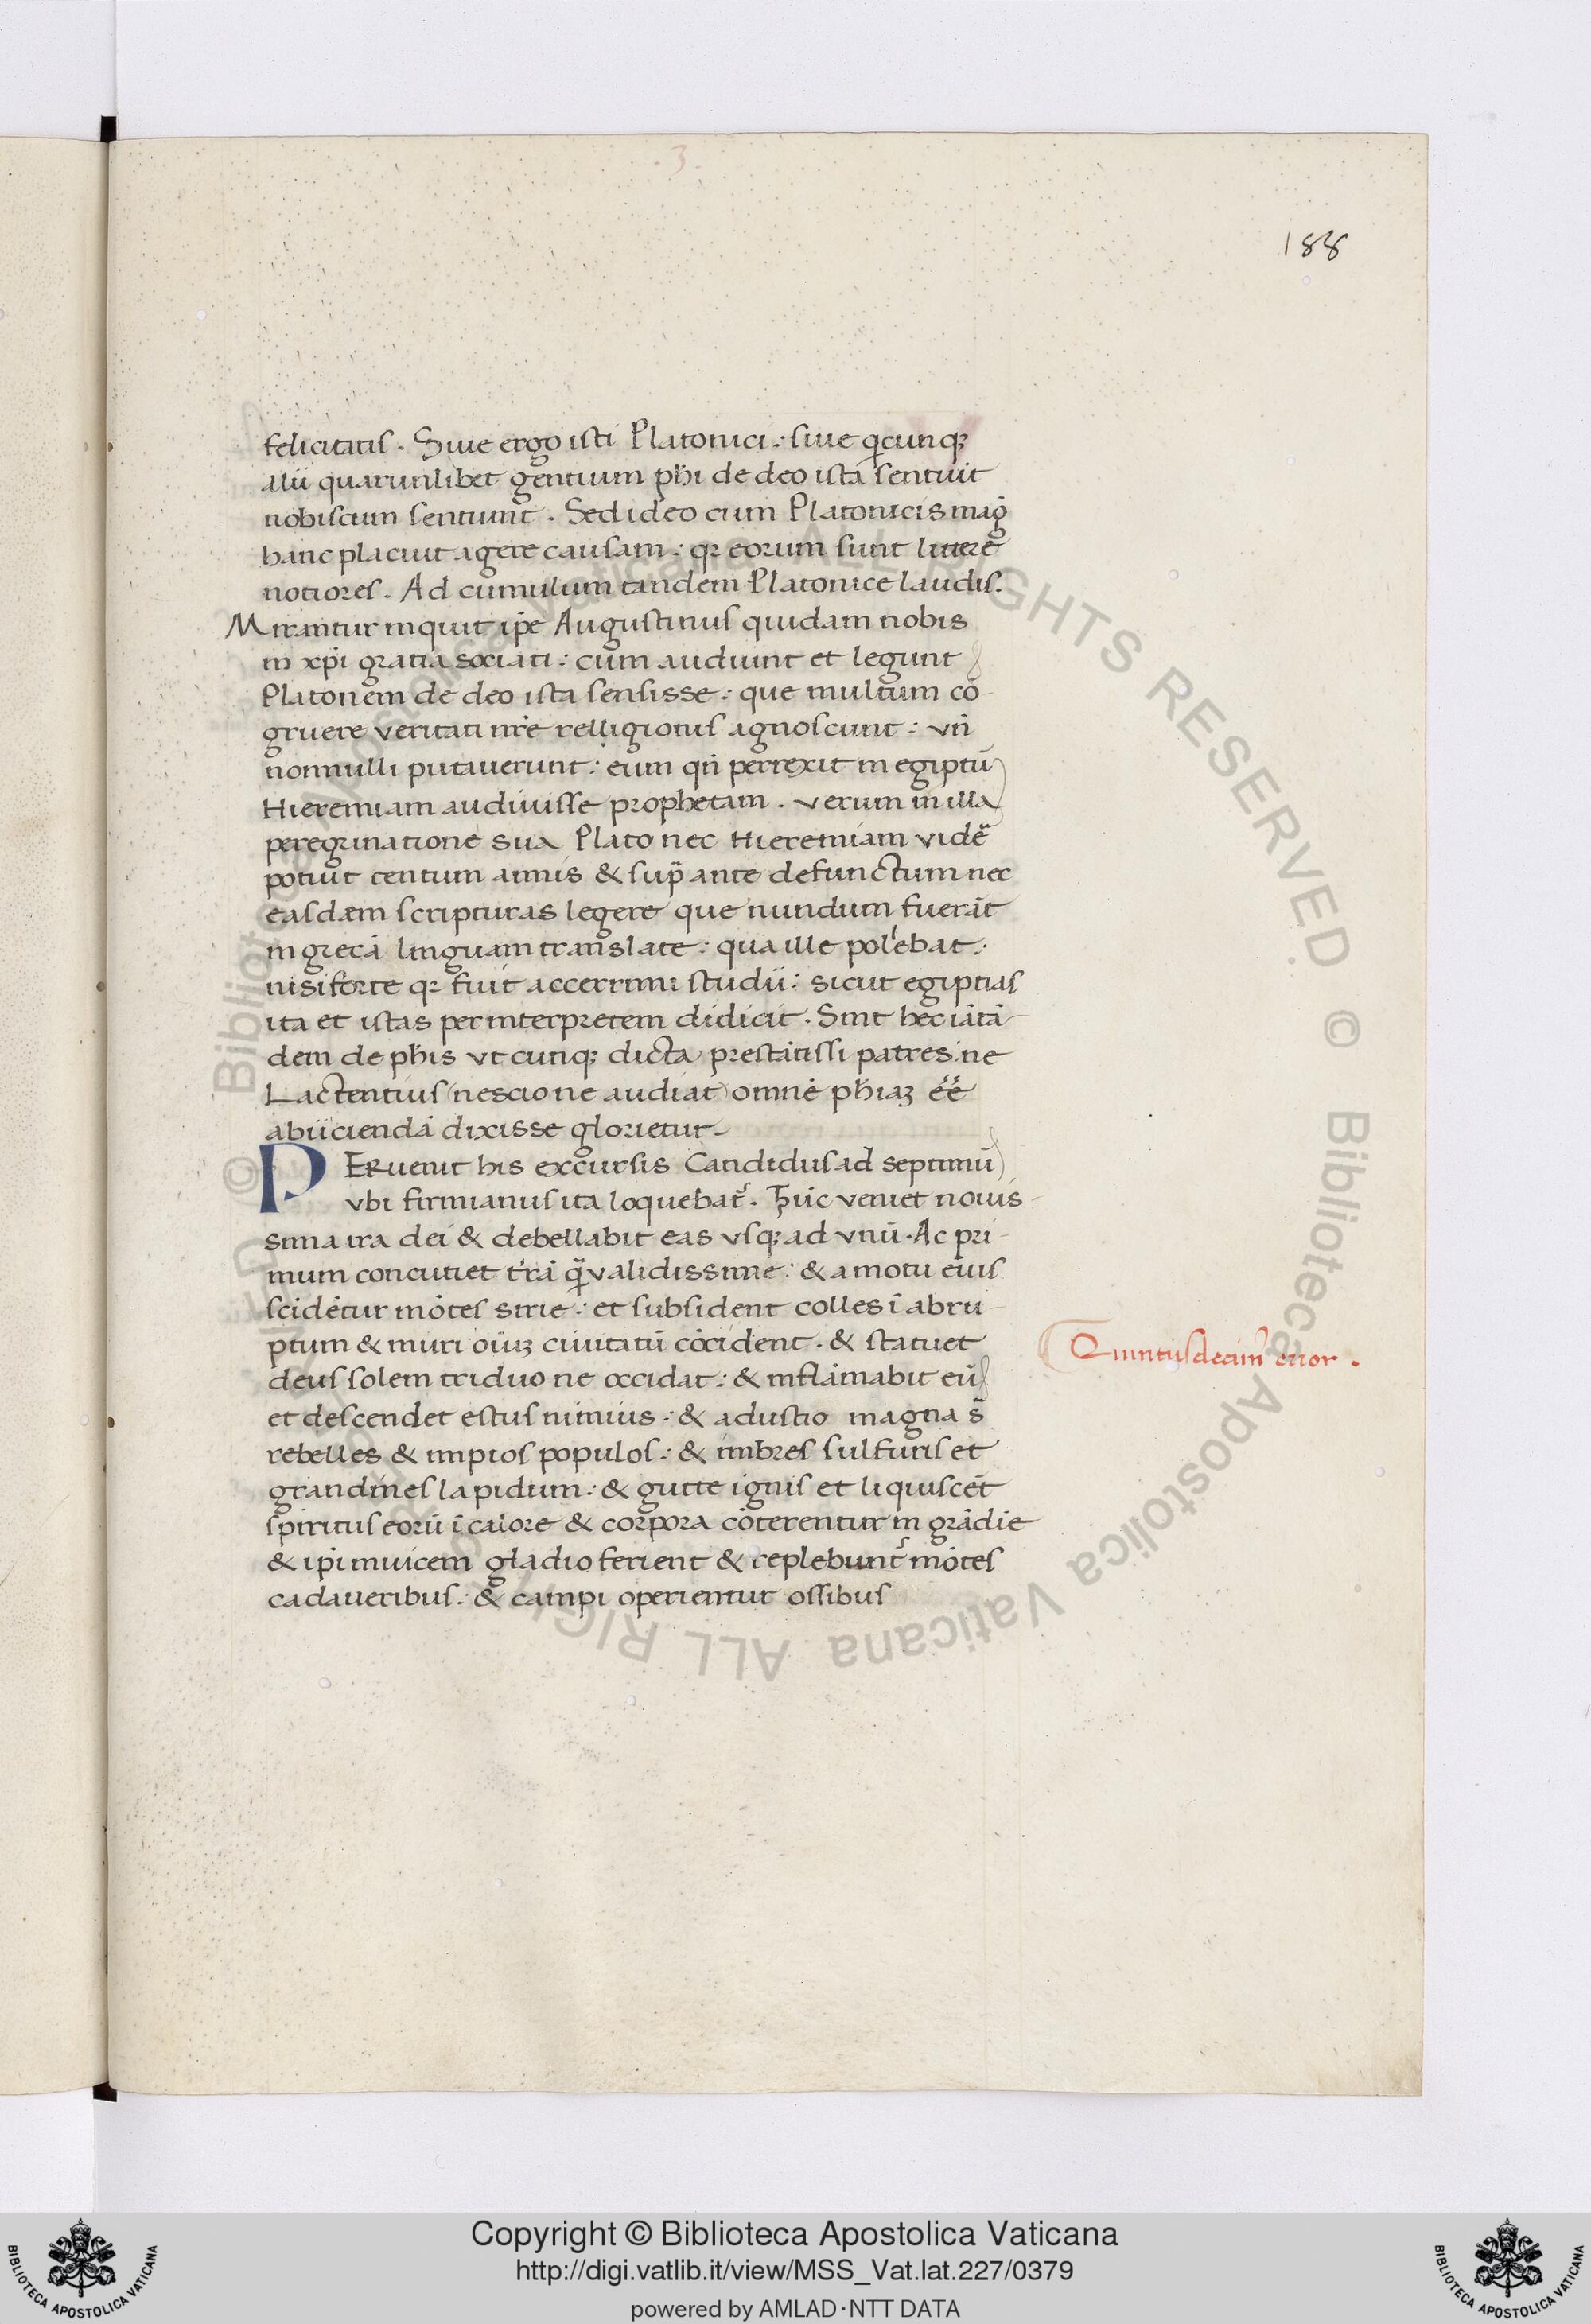 .3.
188
felicitatis . Siue ergo isti Platonici : siue qcunqꝫ
alii quarunlibet gentium phi de deo ista sentiūt
nobiscum sentiunt . Sed ideo cum Platonicis mag̊
hanc placuit agere causam : qꝛ eorum sunt littere
notiores . Ad cumulum tandem Platonice laudis .
Mirantur inquit ip̄e Augustinus quidam nobis
in xp̄i gratia sociati : cum audiunt et legunt
Platonem de deo ista sensisse : que multum cō-
gruere veritati nr̄e relligionis agnoscunt : vñ
nonnulli putauerunt : eum qñ perrexit in egiptū
Hieremiam audiuisse prophetam . verum in illa
peregrinatione sua Plato nec Hieremiam videˉ
potuit centum annis & sup̄ ante defunctum nec
easdem scripturas legere que nundum fuerāt
in grecā linguam translate : qua ille pollebat :
nisi forte qꝛ fuit accerrimi studii : sicut egiptias
ita et istas per interpretem didicit . Sint hec iā tā-
dem de phis vt cunqꝫ dicta prestātissi patres : ne
Lactentius (nescio ne audiat) omnē phiaꝫ ēē
abiiciendā dixisse glorietur .
PERuenit his excursis Candidus ad septimū
vbi firmianus ita loquebat᷑ . Tūc veniet nouis-
sima ira dei & debellabit eas vsqꝫ ad vnū . Ac pri-
mum concutiet t̄rā q̄validissime : & a motu eius
scidētur mōtes sirie : et subsident colles ī abru-
ptum & muri oīuꝫ ciuitatū cōcident . & statuet
deus solem triduo ne occidat : & inflāmabit eū
et descendet estus nimius : & adustio magna s̄
rebelles & impios populos : & imbres sulfuris et
grandines lapidum : & gutte ignis et liquiscēt
spiritus eorū ī calore & corpora cōterentur in grādie
& ip̄i inuicem gladio ferient & replebunt᷑ mōtes
cadaueribus : & campi operientur ossibus
Quintusdecimꝰ error .
Copyright © Biblioteca Apostolica Vaticana
http://digi.vatlib.it/view/MSS_Vat.lat.227/0379
powered by AMLAD·NTT DATA
BIBLIOTECA APOSTOLICA VATICANA
BIBLIOTECA APOSTOLICA VATICANA
© Biblioteca Apostolica Vaticana ALL RIGHTS RESERVED
© Biblioteca Apostolica Vaticana ALL RIGHTS RESERVED